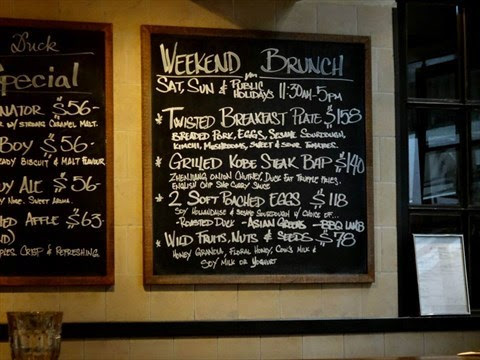 Duck
Special
NATOR $56-
ER W/ STRONG CARAMEL MALT.
BOY $56-
EADY BISCUIT & MALT FLAVOUR.
ALE $56-
$63-
APPLE
CRISP & REFRESHING
WEEKEND BRUNCH
SAT, SUN & PUBLIC
HOLIDAYS 11:30AM-5PM
* TWISTED BREAKFAST PLATE $158
BREADED PORK, EGGS, SESAME SOURDOUGH,
KIMCHI, MUSHROOMS, SWEET & SOUR TOMATOES.
* GRILLED KOBE STEAK BAP $140
ZHENJIANG ONION CHUTNEY, DUCK FAT TRUFFLE
ENGLISH CHIP SHOP CURRY SAUCE
* 2 SOFT POACHED EGGS $118
SOY HOLLANDAISE & SESAME SOURDOUGH W/ CHOICE OF...
-ROASTED DUCK -ASIAN GREENS -BBQ LAMB
* WILD FRUITS, NUTS & SEEDS $78
HONEY GRANOLA, FLORAL HONEY, COW'S MILK &
SOY MILK OR YOGHURT